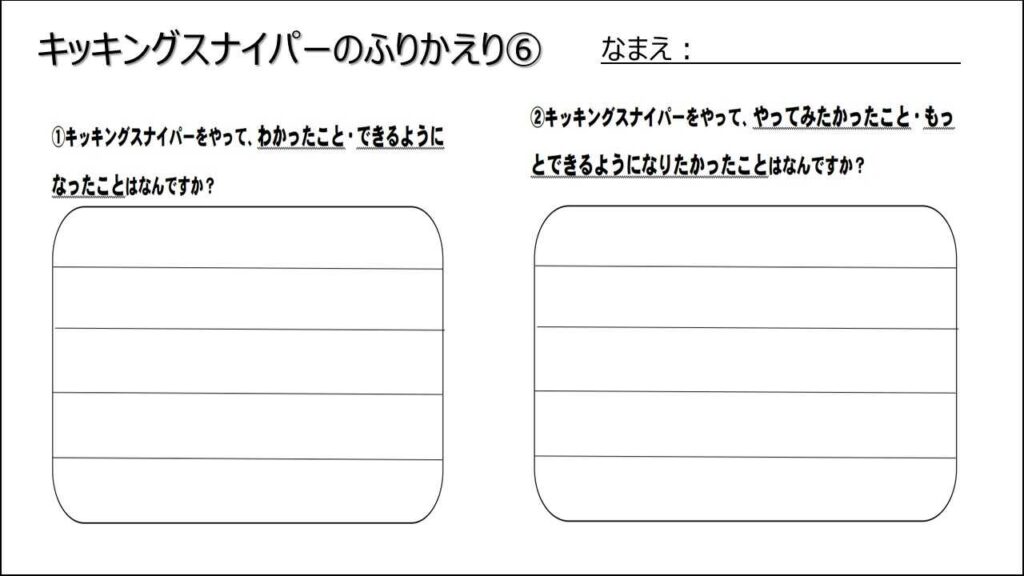 キッキングスナイパーのふりかえり⑥
なまえ：
①キッキングスナイパーをやって、わかったこと・できるように
なったことはなんですか？
②キッキングスナイパーをやって、やってみたかったこと・もっ
とできるようになりたかったことはなんですか？